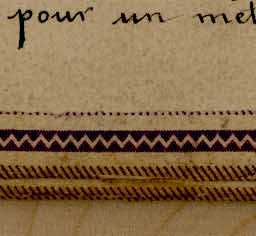 pour un mét